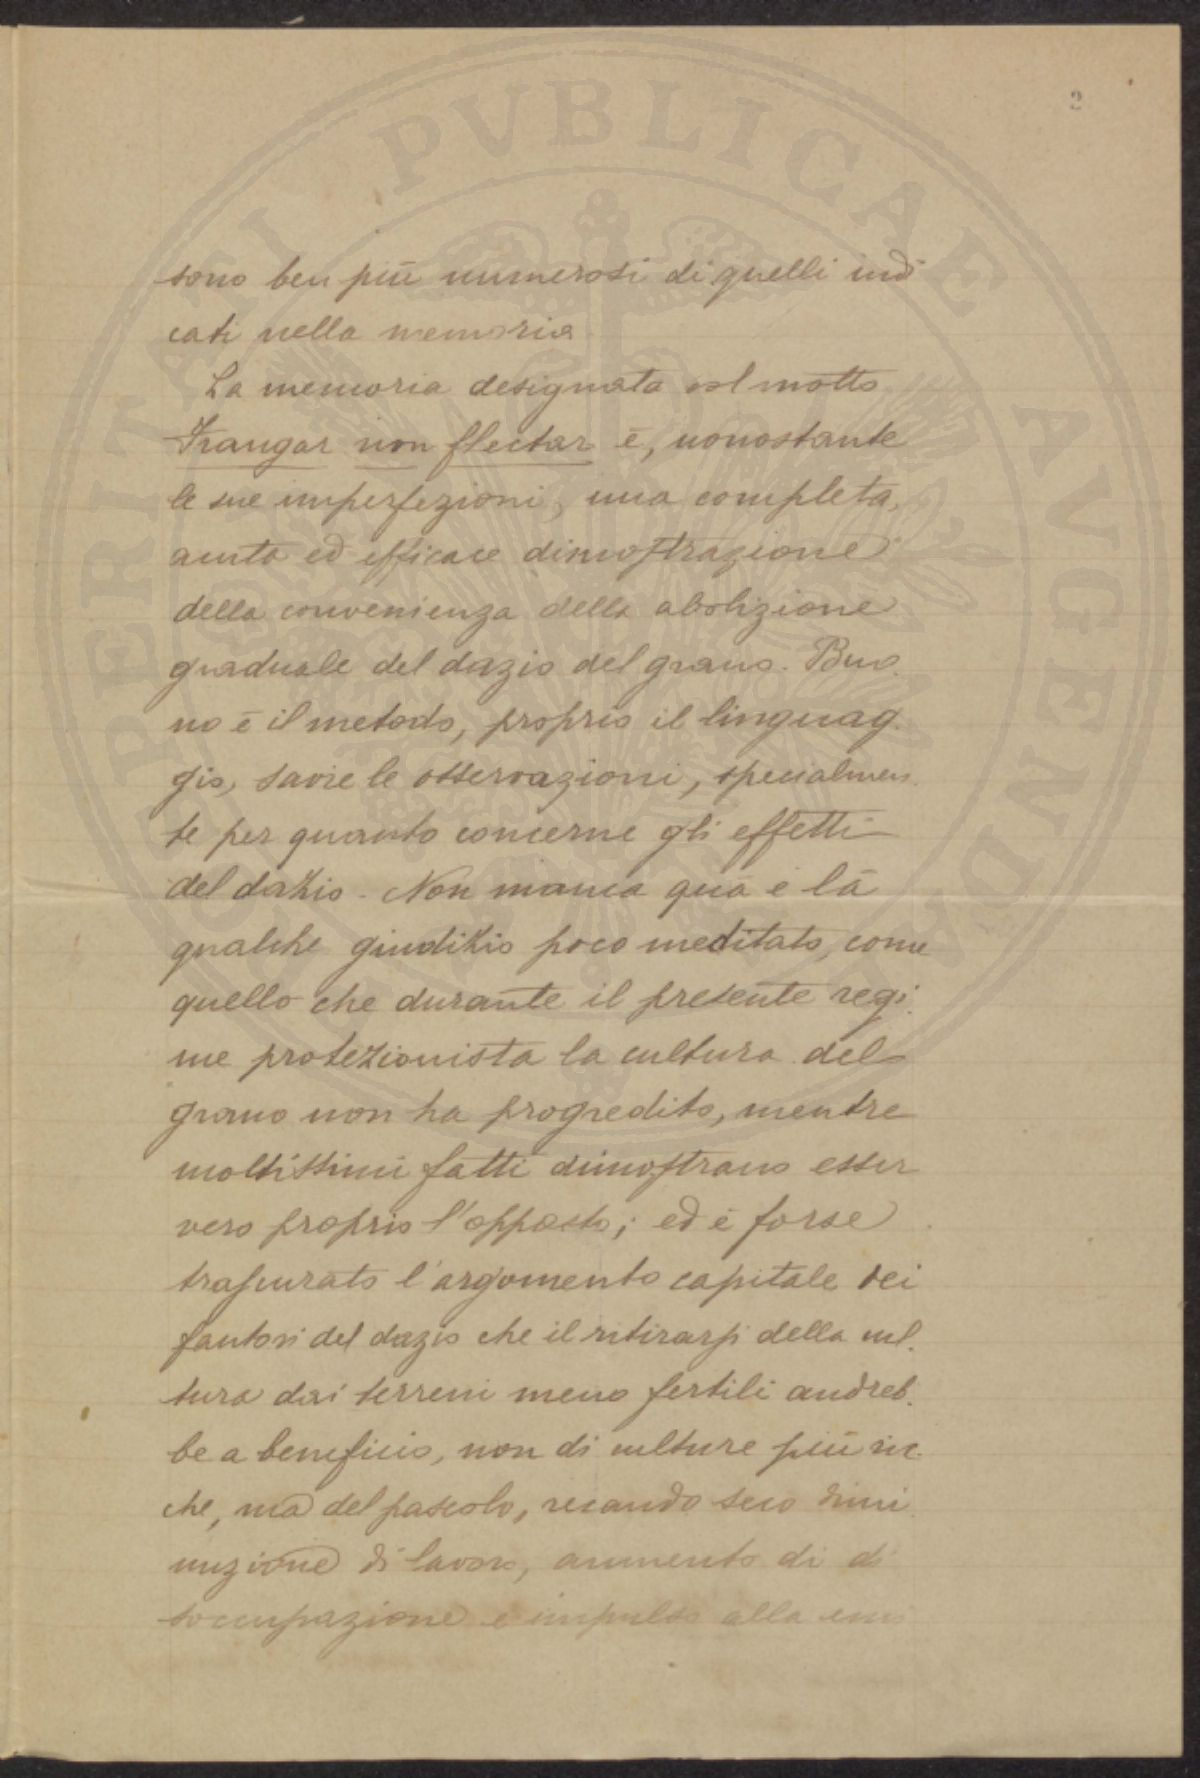 2
sono ben più numerosi di quelli indi
cati nella memoria.
La memoria designata col motto
Frangar non flectar è, nonostante
le sue imperfezioni, una completa,
acuta ed efficace dimostrazione
della convenienza della abolizione
graduale del dazio del grano. Buo.
no è il metodo, proprio il linguag.
gio, savie le osservazioni, specialmen.
te per quanto concerne gli effetti
del dazio. Non manca quà e là
qualche giudizio poco meditato, come
quello che durante il presente regi.
me protezionista la cultura del
grano non ha progredito, mentre
moltissimi fatti dimostrano esser
vero proprio l'opposto; ed è forse
trascurato l'argomento capitale dei
fautori del dazio che il ritirarsi della cul.
tura dai terreni meno fertili andreb.
be a beneficio, non di culture più ric.
che, ma del pascolo, recando seco dimi
nuzione di lavoro, aumento di di
soccupazione e impulso alla emi
PROSPERITATI PVBLICAE AVGENDAE